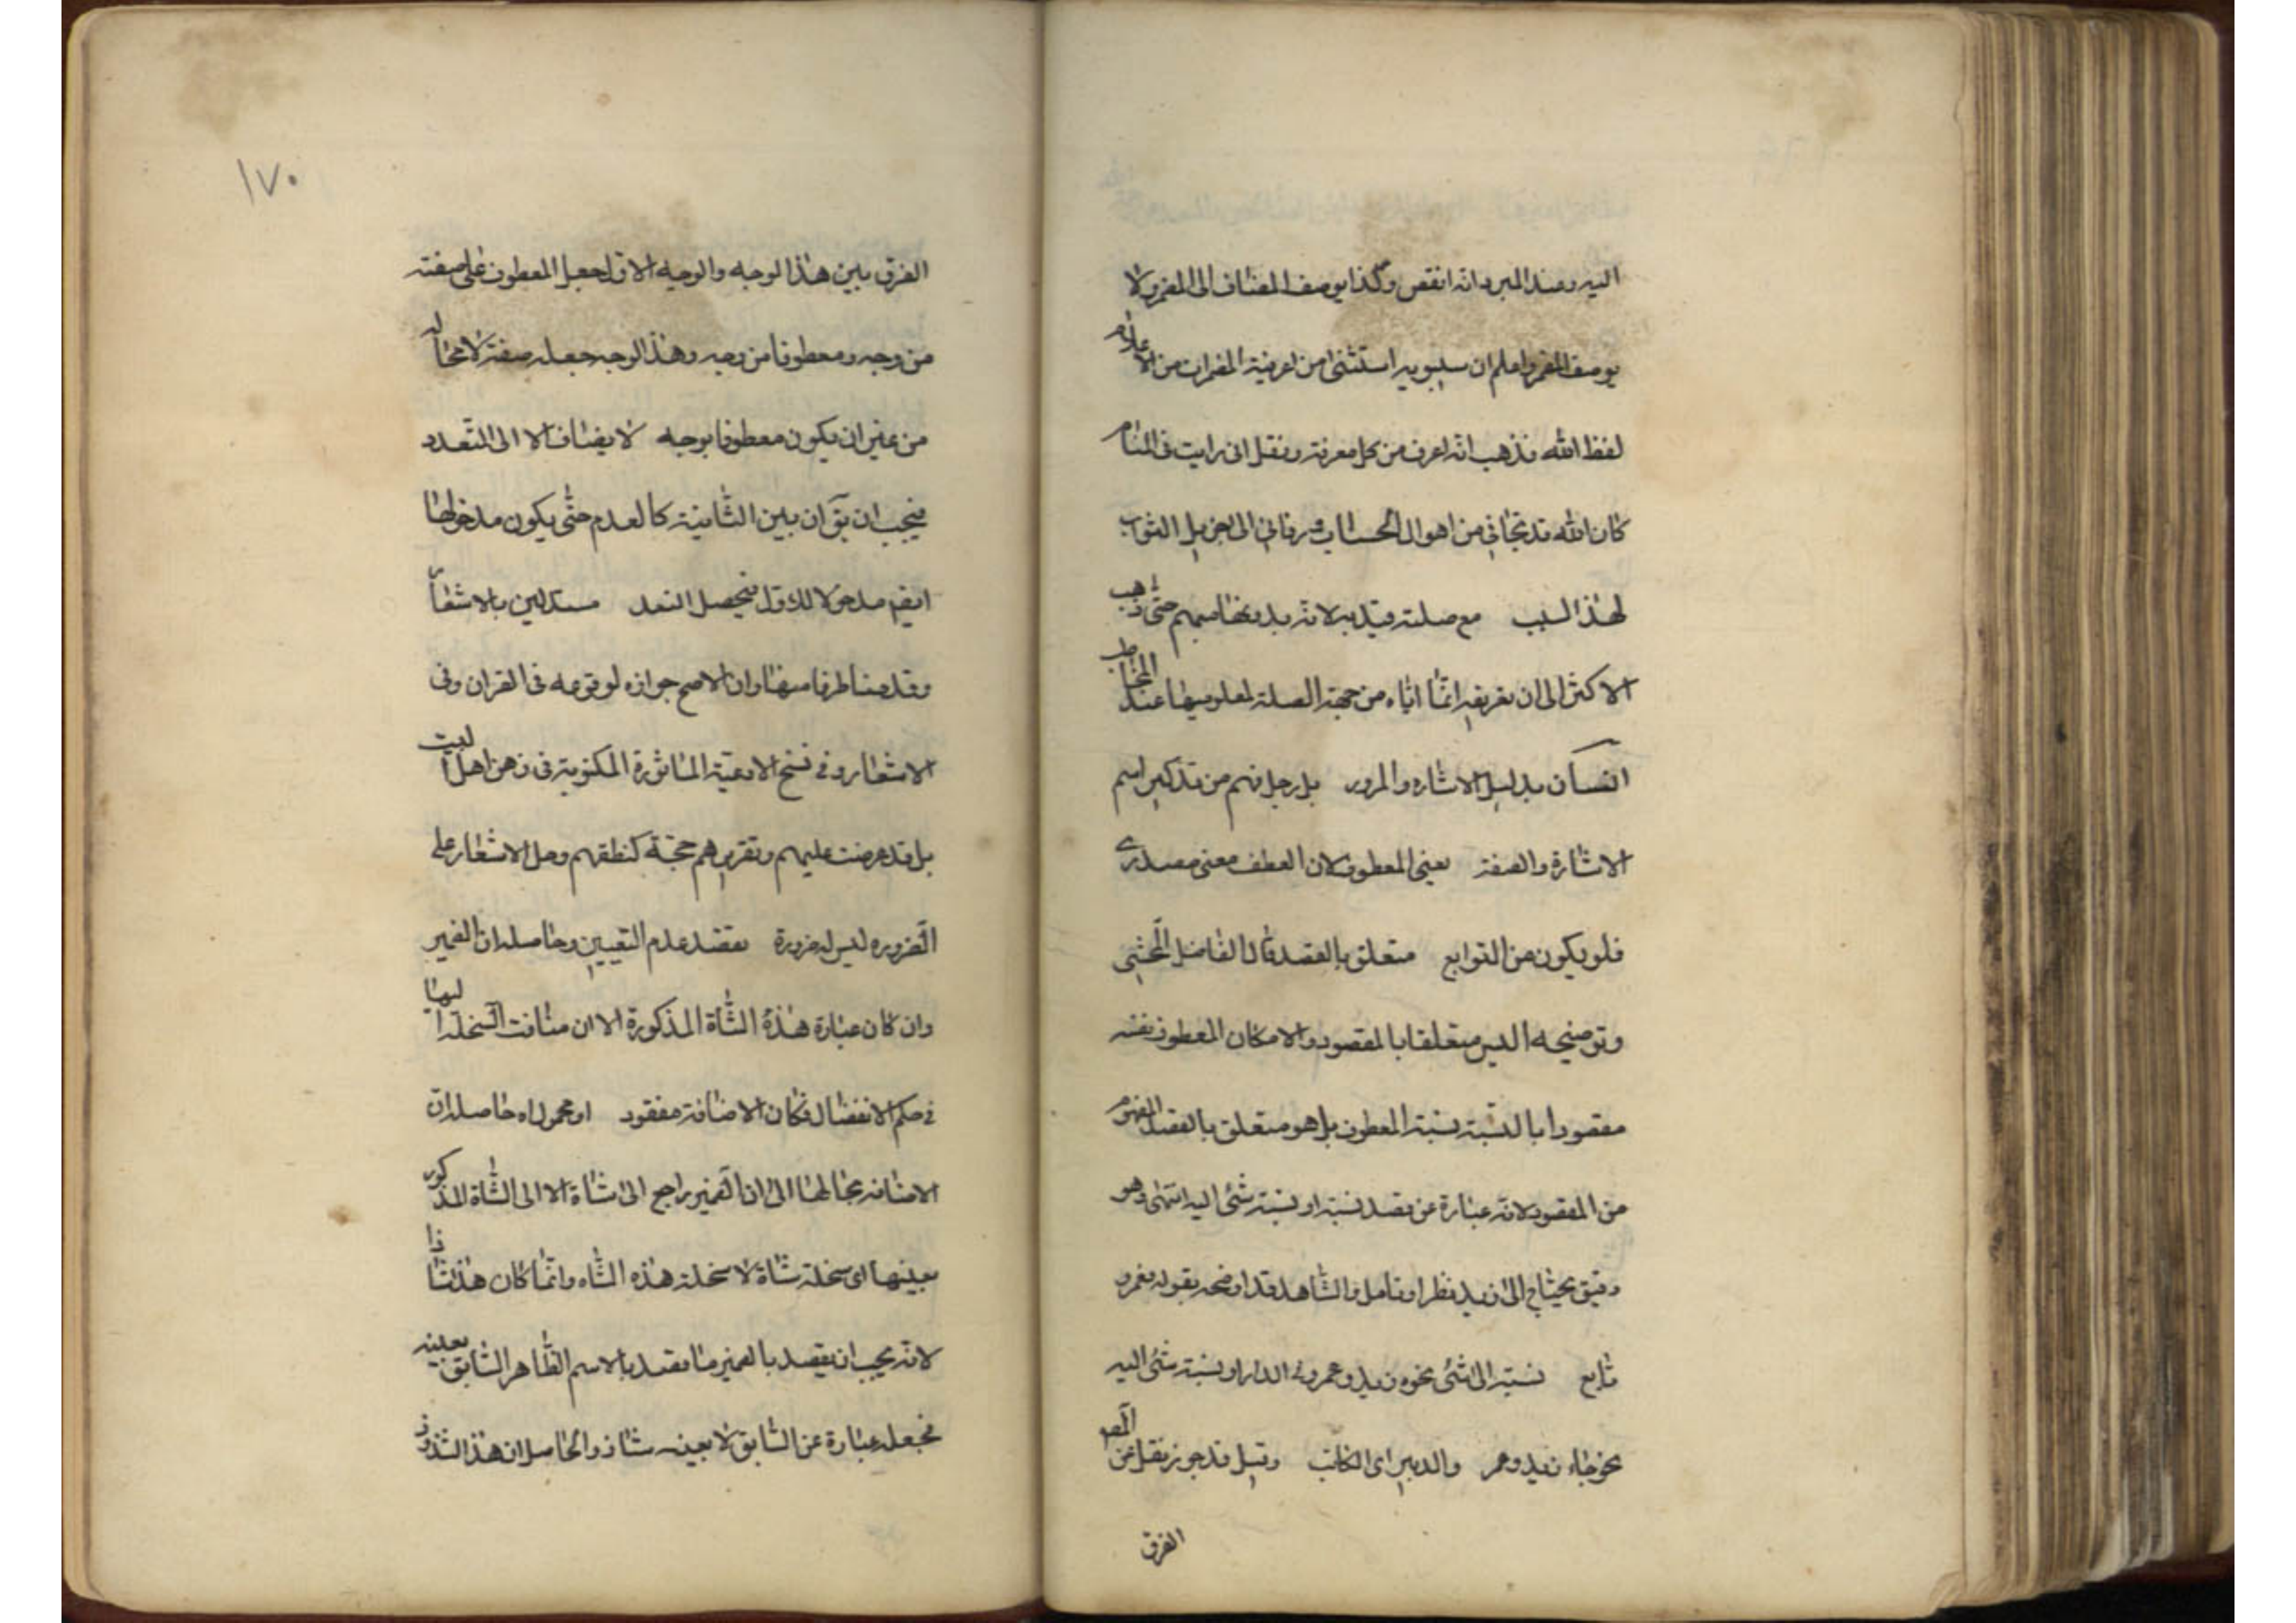 اليه وعند المبرد انه انقص وكذا يوصف المضاف الى المضمر ولا
يوصف المضمر واعلم ان سيبويه استثنى من اعرفية المضمرات من الاعلام
لفظ الله فذهب انه اعرف من كل معرفة ونقل انى رايت فى المنام
كان الله قد نجانى من اهوال الحساب ورقانى الى جزيل الثواب
لهذا السبب مع صلته قيد به لانه بدونها مبهم حتى ذهب
الاكثر الى ان تعريفه انما اتاه من جهة الصلة لمعلوميتها عند المخاطب
انسان بدليل الاشاره والمرور بل رجل فهم من تذكير اسم
الاشارة والصفة يعنى المعطوف لان العطف معنى مصدرى
فلو يكون من التوابع متعلق بالقصد قال الفاضل المحشى
وتوضيحه ليس متعلقا بالمقصود والا مكان المعطوف نفسه
مقصودا بالنسبة نسبة المعطوف بل هو متعلق بالقصد المفهوم
من المقصود لانه عبارة عن قصد نسبته او نسبة شئ اليه انتهى وهو
دقيق يحتاج الى زيد نظر او تامل والشاهد قد اوضحه بقوله فعمرو
تابع نسبته الى شئ نحوه زيد وعمرو فى الدار او نسبة شئ اليه
نحو جاء زيد وعمر والدبير اى الكاتب وقيل قد جوز نقل عن المص
الفرق
١٧٠
الفرق بين هذا الوجه والوجيه الاول جعل المعطوف على صفته
من وجه ومعطوفا من وجه وهذا الوجه جعله صفة لا محاله
من غير ان يكون معطوفا بوجه لا يضاف الا الى المتعدد
فيجب ان يق ان بين الثانية كالعدم حتى يكون مدخولها
ايضا مدخولا للاول فيحصل التعدد مستدلين بالاشعار
وقد منا طرفا منها وان الاصح جوازه لوقوعه فى القران وفى
الاشعار وفى نسخ الادعية الماثورة المكتوبة فى زمن اهل البيت
بل قد عرضت عليهم وتقريرهم حجة كنطقهم وحمل الاشعار على
الضروره ليس له ضرورة بقصد عدم التعيين وحاصله ان الضمير
وان كان عبارة هذه الشاة المذكورة الا ان مضافت السخلة اليها
فى حكم الانفصال فكان الاضافة مفقود او محموله حاصله ان
الاضافه بحالها الى ان الضمير راجع الى شاة لا الى الشاة المذكوره
بعينها اى سخلة شاة لا سخلة هذه الشاه وانما كان هذا شاذا
لانه يجب ان يقصد بالضمير ما يقصد بالاسم الظاهر السابق بعينه
فجعله عبارة عن السابق لا بعينه شاذ والحاصل ان هذا الشذوذ